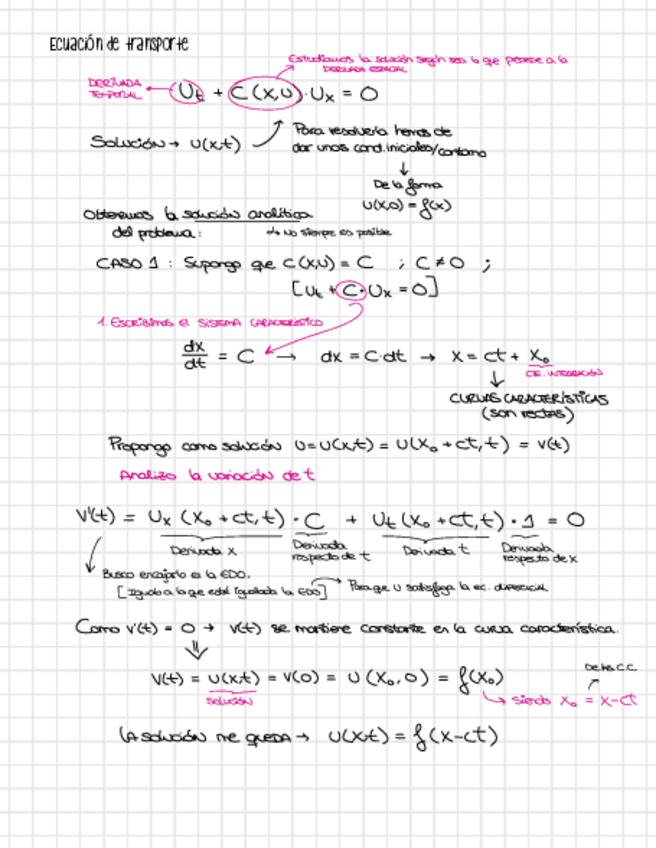 Ecuación de transporte
Estudiamos la solución según sea lo que precede a la
DERIVADA ESPACIAL
DERIVADA
TEMPORAL
Ut + C(x,u)·Ux = 0
Solución → u(x,t)
Para resolverla hemos de
dar unas cond.iniciales/contorno
De la forma
u(x,0) = f(x)
Obtenemos la solución analítica
del problema:
↳ No siempre es posible
CASO 1 : Supongo que C(x,u) = C ; C ≠ 0 ;
[Ut + C·Ux = 0]
1. ESCRIBIMOS EL SISTEMA CARACTERÍSTICO
dx/dt = C → dx = C·dt → x = ct + x₀
CTE. INTEGRACIÓN
CURVAS CARACTERÍSTICAS
(son rectas)
Propongo como solución u = u(x,t) = u(x₀ + ct, t) = v(t)
Analizo la variación de t
v'(t) = Ux (x₀ + ct, t) · C + Ut (x₀ + ct, t) · 1 = 0
Derivada x Derivada respecto de t Derivada t Derivada respecto de x
Busco encajarlo en la EDO.
[Igualo a lo que está igualada la EDO] → Para que u satisfaga la ec. diferencial
Como v'(t) = 0 → v(t) se mantiene constante en la curva característica.
v(t) = u(x,t) = v(0) = u(x₀,0) = f(x₀)
De las C.C.
solución
↳ siendo x₀ = x-ct
LA solución me queda → u(x,t) = f(x-ct)